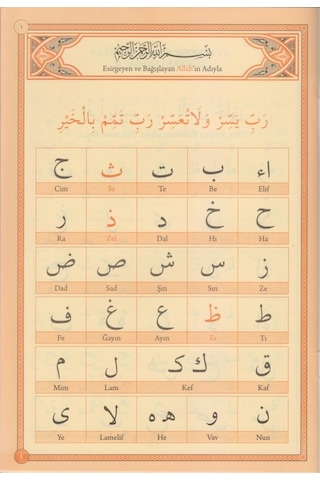 ١
بِسْمِ اللهِ الرَّحْمٰنِ الرَّحِيمِ
Esirgeyen ve Bağışlayan Allah'ın Adıyla
رَبِّ يَسِّرْ وَلَا تُعَسِّرْ رَبِّ تَمِّمْ بِالْخَيْرِ
اء ب ت ث ج
Elif Be Te Se Cim
ح خ د ذ ر
Ha Hı Dal Zel Ra
ز س ش ص ض
Ze Sin Şin Sad Dad
ط ظ ع غ ف
Tı Zı Ayın Ğayın Fe
ق ك ک ل م
Kaf Kef Lam Mim
ن و ه ه لا ى
Nun Vav He Lamelif Ye
1